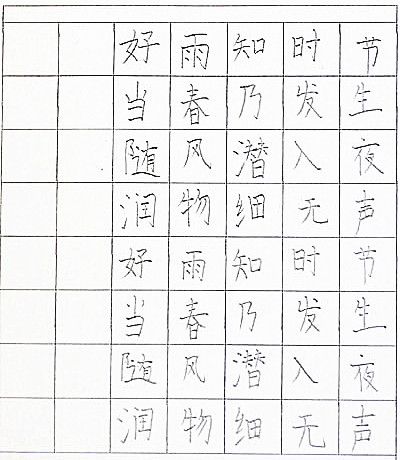 好雨知时节
当春乃发生
随风潜入夜
润物细无声
好雨知时节
当春乃发生
随风潜入夜
润物细无声